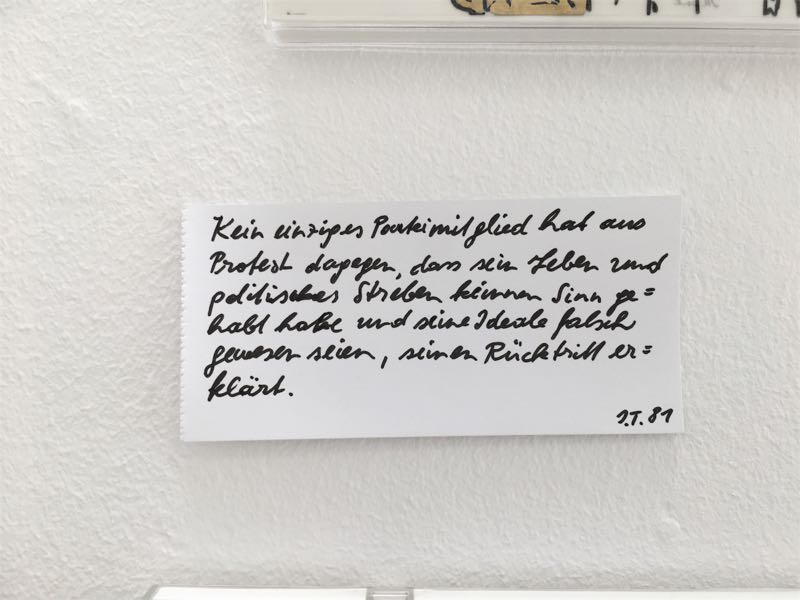 Kein einziges Parteimitglied hat aus
Protest dagegen, dass sein Leben und
politisches Streben keinen Sinn ge=
habt habe und seine Ideale falsch
gewesen seien, seinen Rücktritt er=
klärt.
J.T. 81